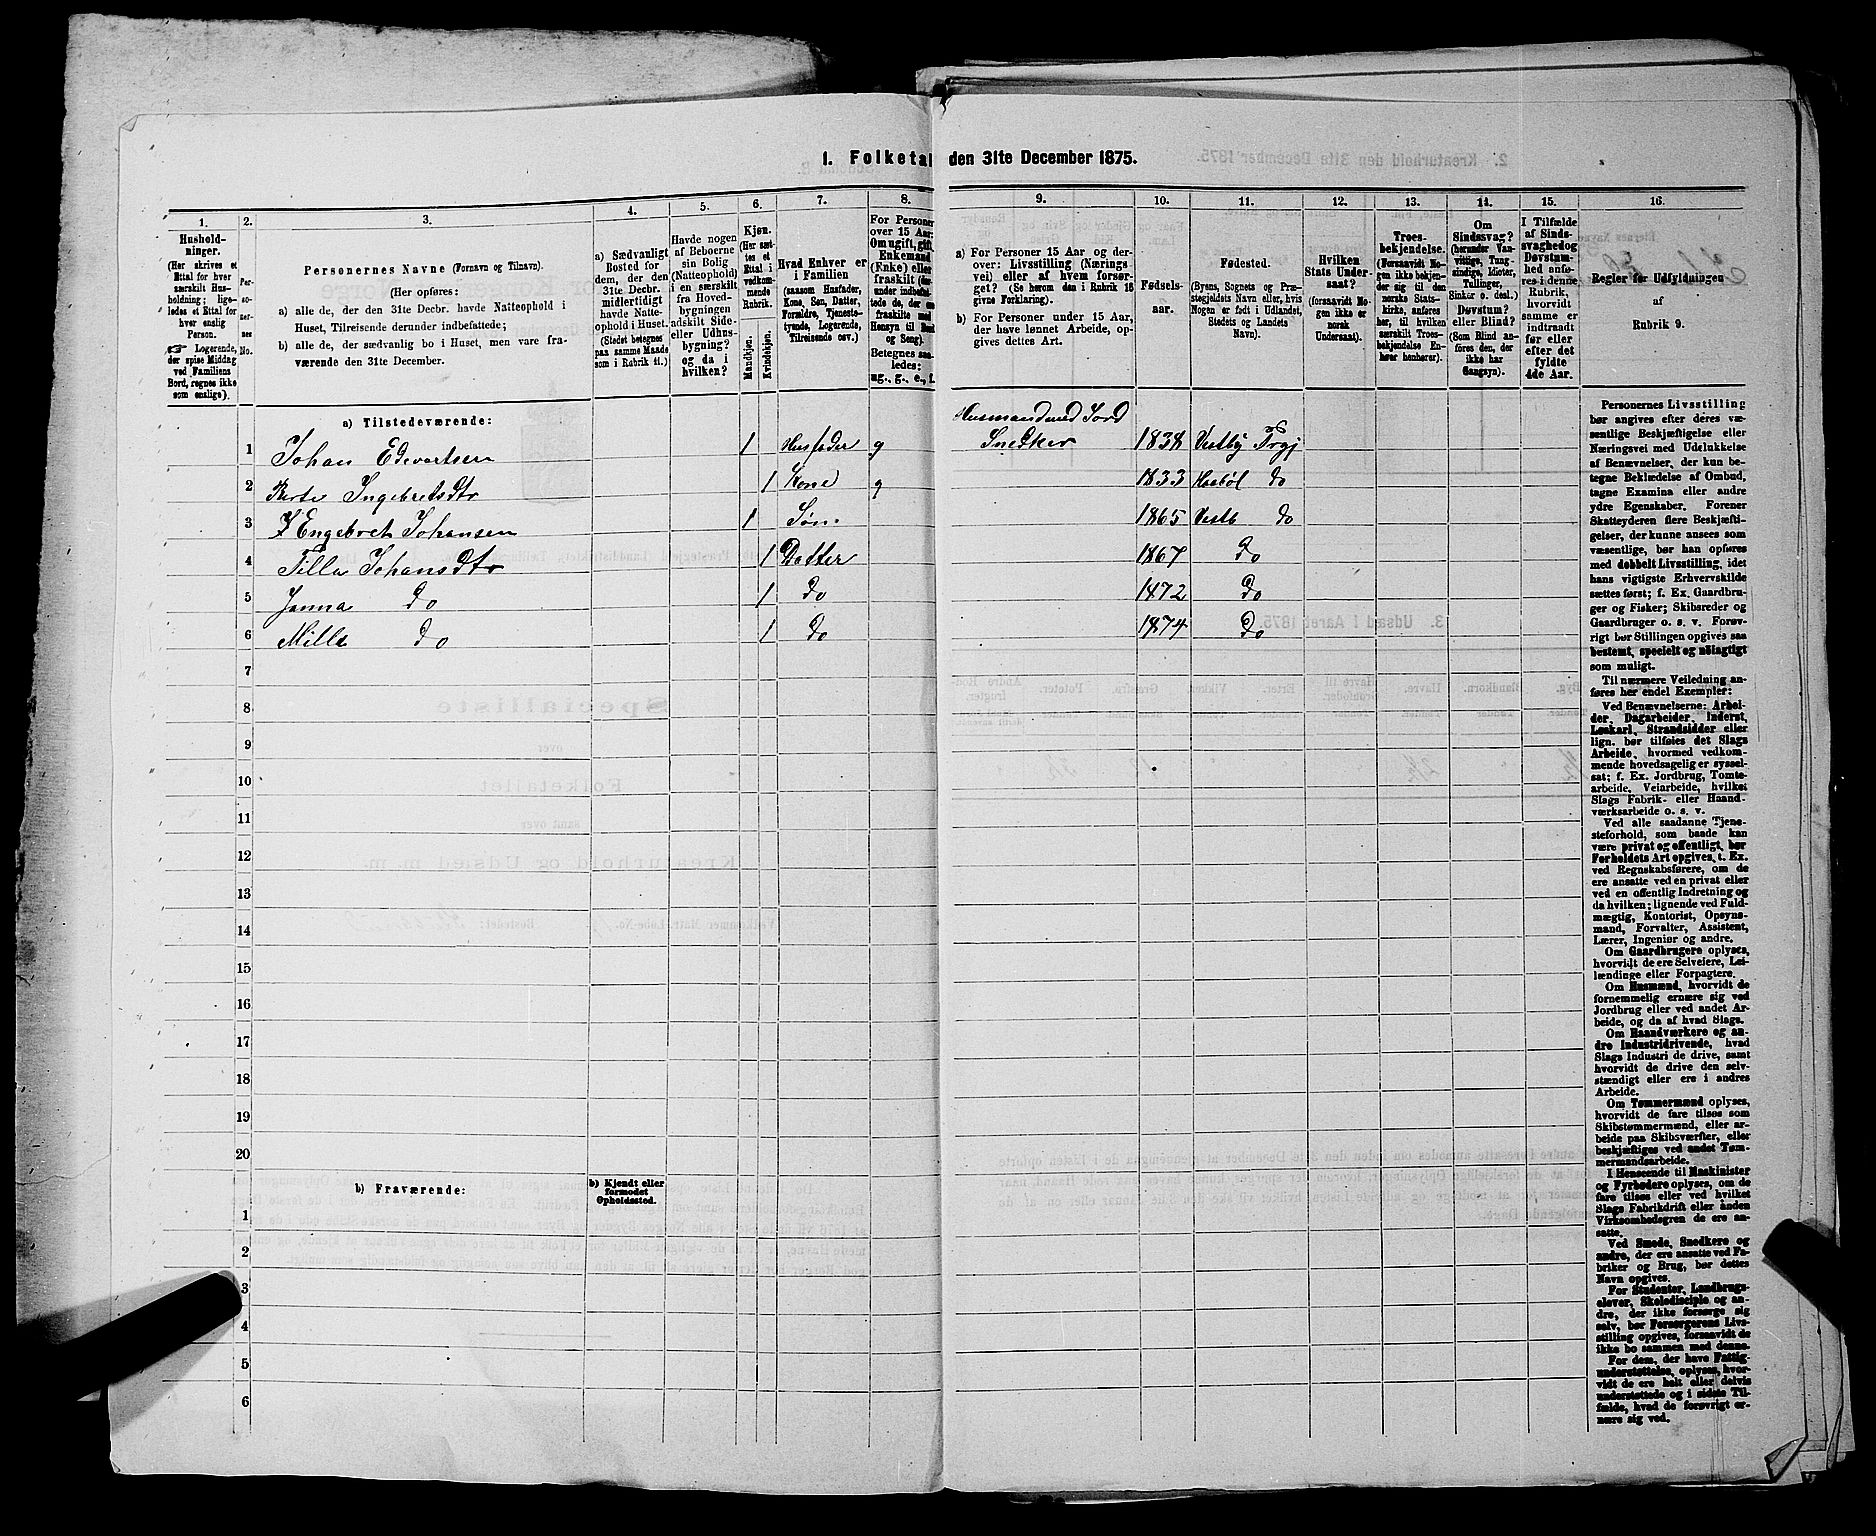 1. Folketal den 31te December 1875.
1. 2. 3. 4. 5. 6. 7. 8. 9. 10. 11. 12. 13. 14. 15. 16.
Husholdninger.
(Her skrives et
Ettal for hver
særskilt Husholdning; ligeledes
et Ettal for
hver enslig
Person.
Logerende,
der spise Middag
ved Familiens
Bord, regnes ikke
som enslige).
Personernes No.
Personernes Navne (Fornavn og Tilnavn).
(Her opføres:
a) alle de, der den 31te Decbr. havde Natteophold i
Huset, Tilreisende derunder indbefattede;
b) alle de, der sædvanlig bo i Huset, men vare fraværende
den 31te December.
a) Sædvanligt
Bosted for
dem, der den
31te Decbr.
midlertidigt
havde Natteophold
i Huset.
(Stedet betegnes
paa samme Maade
som i Rubrik 11.)
Havde nogen
af Beboerne
sin Bolig
(Natteophold)
i en særskilt
fra Hovedbygningen
adskilt Side-
eller Udhusbygning?
og da i
hvilken?
Kjøn.
(Her sættes
et
Ettal i
vedkommende
Rubrik.
Mandkjøn.
Kvindekjøn.
Hvad Enhver er
i Familien
(saasom Husfader,
Kone, Søn, Datter,
Forældre, Tjenestetyende,
Logerende,
Tilreisende osv.)
For Personer
over 15 Aar:
Om ugift, gift,
Enkemand
(Enke) eller
fraskilt
Betegnes saaledes:
ug., g., e., f.
a) For Personer 15 Aar og derover:
Livsstilling (Næringsvei)
eller af hvem forsørget?
(Se herom den i Rubrik 16
givne Forklaring).
b) For Personer under 15 Aar,
der have lønnet Arbeide, opgives
dettes Art.
Fødselsaar.
Fødested.
(Byens, Sognets og Præstegjeldets
Navn eller, hvis
Nogen er født i Udlandet,
Stedets og Landets
Navn).
Hvilken
Stats Undersaat?
(forsaavidt Nogen
ikke er
norsk
Undersaat).
Troesbekjendelse.
(Forsaavidt Nogen
ikke bekjender
sig til den
norske Statskirke,
anføres
her, til hvilken
særskilt Troesbekjendelse
Enhver
henhører).
Om
Sindssvag?
(herunder Vanvittige,
Tungsindige,
Idioter,
Tullinger,
Sinker o. desl.)
Døvstum?
eller Blind?
(Som Blind anføres
den, der
ikke har
Gangsyn).
I Tilfælde
af Sindssvaghed
og
Døvstumhed
anføres
i denne
Rubrik,
hvorvidt
samme er
indtraadt
før eller
efter det
fyldte
4de Aar.
Regler for Udfyldningen
af
Rubrik 9.
a) Tilstedeværende:
Husmand med Jord
1 Johan Edevartsen 1 Husfader g Snedker 1838 Vestby Prgj
2 Berte Ingebretsdtr 1 Kone g 1833 Haabøl do
3 Engebret Johansen 1 Søn 1865 Vestb do
4 Tilla Johansdtr 1 Datter 1867 do
5 Janna do 1 do 1872 do
6 Milla do 1 do 1874 do
7
8
9
10
11
12
13
14
15
16
17
18
19
20
b) Fraværende:
b) Kjendt eller
formodet
Opholdssted.
1
2
3
4
5
6
Personernes Livsstilling
bør angives efter deres væsentlige
Beskjæftigelse eller
Næringsvei med Udelukkelse
af Benævnelser, der kun betegne
Beklædelse af Ombud,
tagne Examina eller andre
ydre Egenskaber. Forener
Skatteyderen flere Beskjæftigelser,
der kunne ansees som
væsentlige, bør han opføres
med dobbelt Livsstilling, idet
hans vigtigste Erhvervskilde
sættes først; f. Ex. Gaardbruger
og Fisker; Skibsreder og
Gaardbruger o. s. v. Forøvrigt
bør Stillingen opgives saa
bestemt, specielt og nøiagtigt
som muligt.
Til nærmere Veiledning anføres
her endel Exempler:
Ved Benævnelserne: Arbeider,
Dagarbeider, Inderst,
Løskarl, Strandsidder eller
lign. bør tilføies det Slags
Arbeide, hvormed vedkommende
hovedsagelig er sysselsat;
f. Ex. Jordbrug, Tomtearbeide,
Veiarbeide, hvilket
Slags Fabrik- eller Haandværksarbeide
o. s. v.
Ved alle saadanne Tjenesteforhold,
som baade kan
være privat og offentligt, bør
Forholdets Art opgives, t. Ex.
ved Regnskabsførere, om de
ere ansatte ved en privat eller
ved en offentlig Indretning og
da hvilken; lignende ved Fuldmægtig,
Kontorist, Opsynsmand,
Forvalter, Assistent,
Lærer, Ingeniør og andre.
Om Gaardbrugere oplyses,
hvorvidt de ere Selveiere, Leilændinge
eller Forpagtere.
Om Husmænd, hvorvidt de
fornemmelig ernære sig ved
Jordbrug eller ved andet Arbeide,
og da af hvad Slags.
Om Haandværkere og andre
Industridrivende, hvad
Slags Industri de drive, samt
hvorvidt de drive den selvstændigt
eller ere i andres
Arbeide.
Om Tømmermænd oplyses,
hvorvidt de fare tilsøs som
Skibstømmermænd, eller arbeide
paa Skibsværfter, eller
beskjæftiges ved andet Tømmermandsarbeide.
I Henseende til Maskinister
og Fyrbødere oplyses, om de
fare tilsøs eller ved hvilket
Slags Fabrikdrift eller anden
Virksomhedsgren de ere ansatte.
Ved Smede, Snedkere og
andre, der ere ansatte ved Fabriker
og Brug, bør dettes
Navn opgives.
For Studenter, Landbrugselever,
Skoledisciple og andre,
der ikke forsørge sig
selv, bør Forsørgerens Livsstilling
opgives, forsaavidt de
ikke bo sammen med denne.
For dem, der have Fattigunderstøttelse,
oplyses, hvorvidt
de ere helt eller delvis
understøttede og i sidste Tilfælde,
hvad de forøvrigt ernære
sig ved.